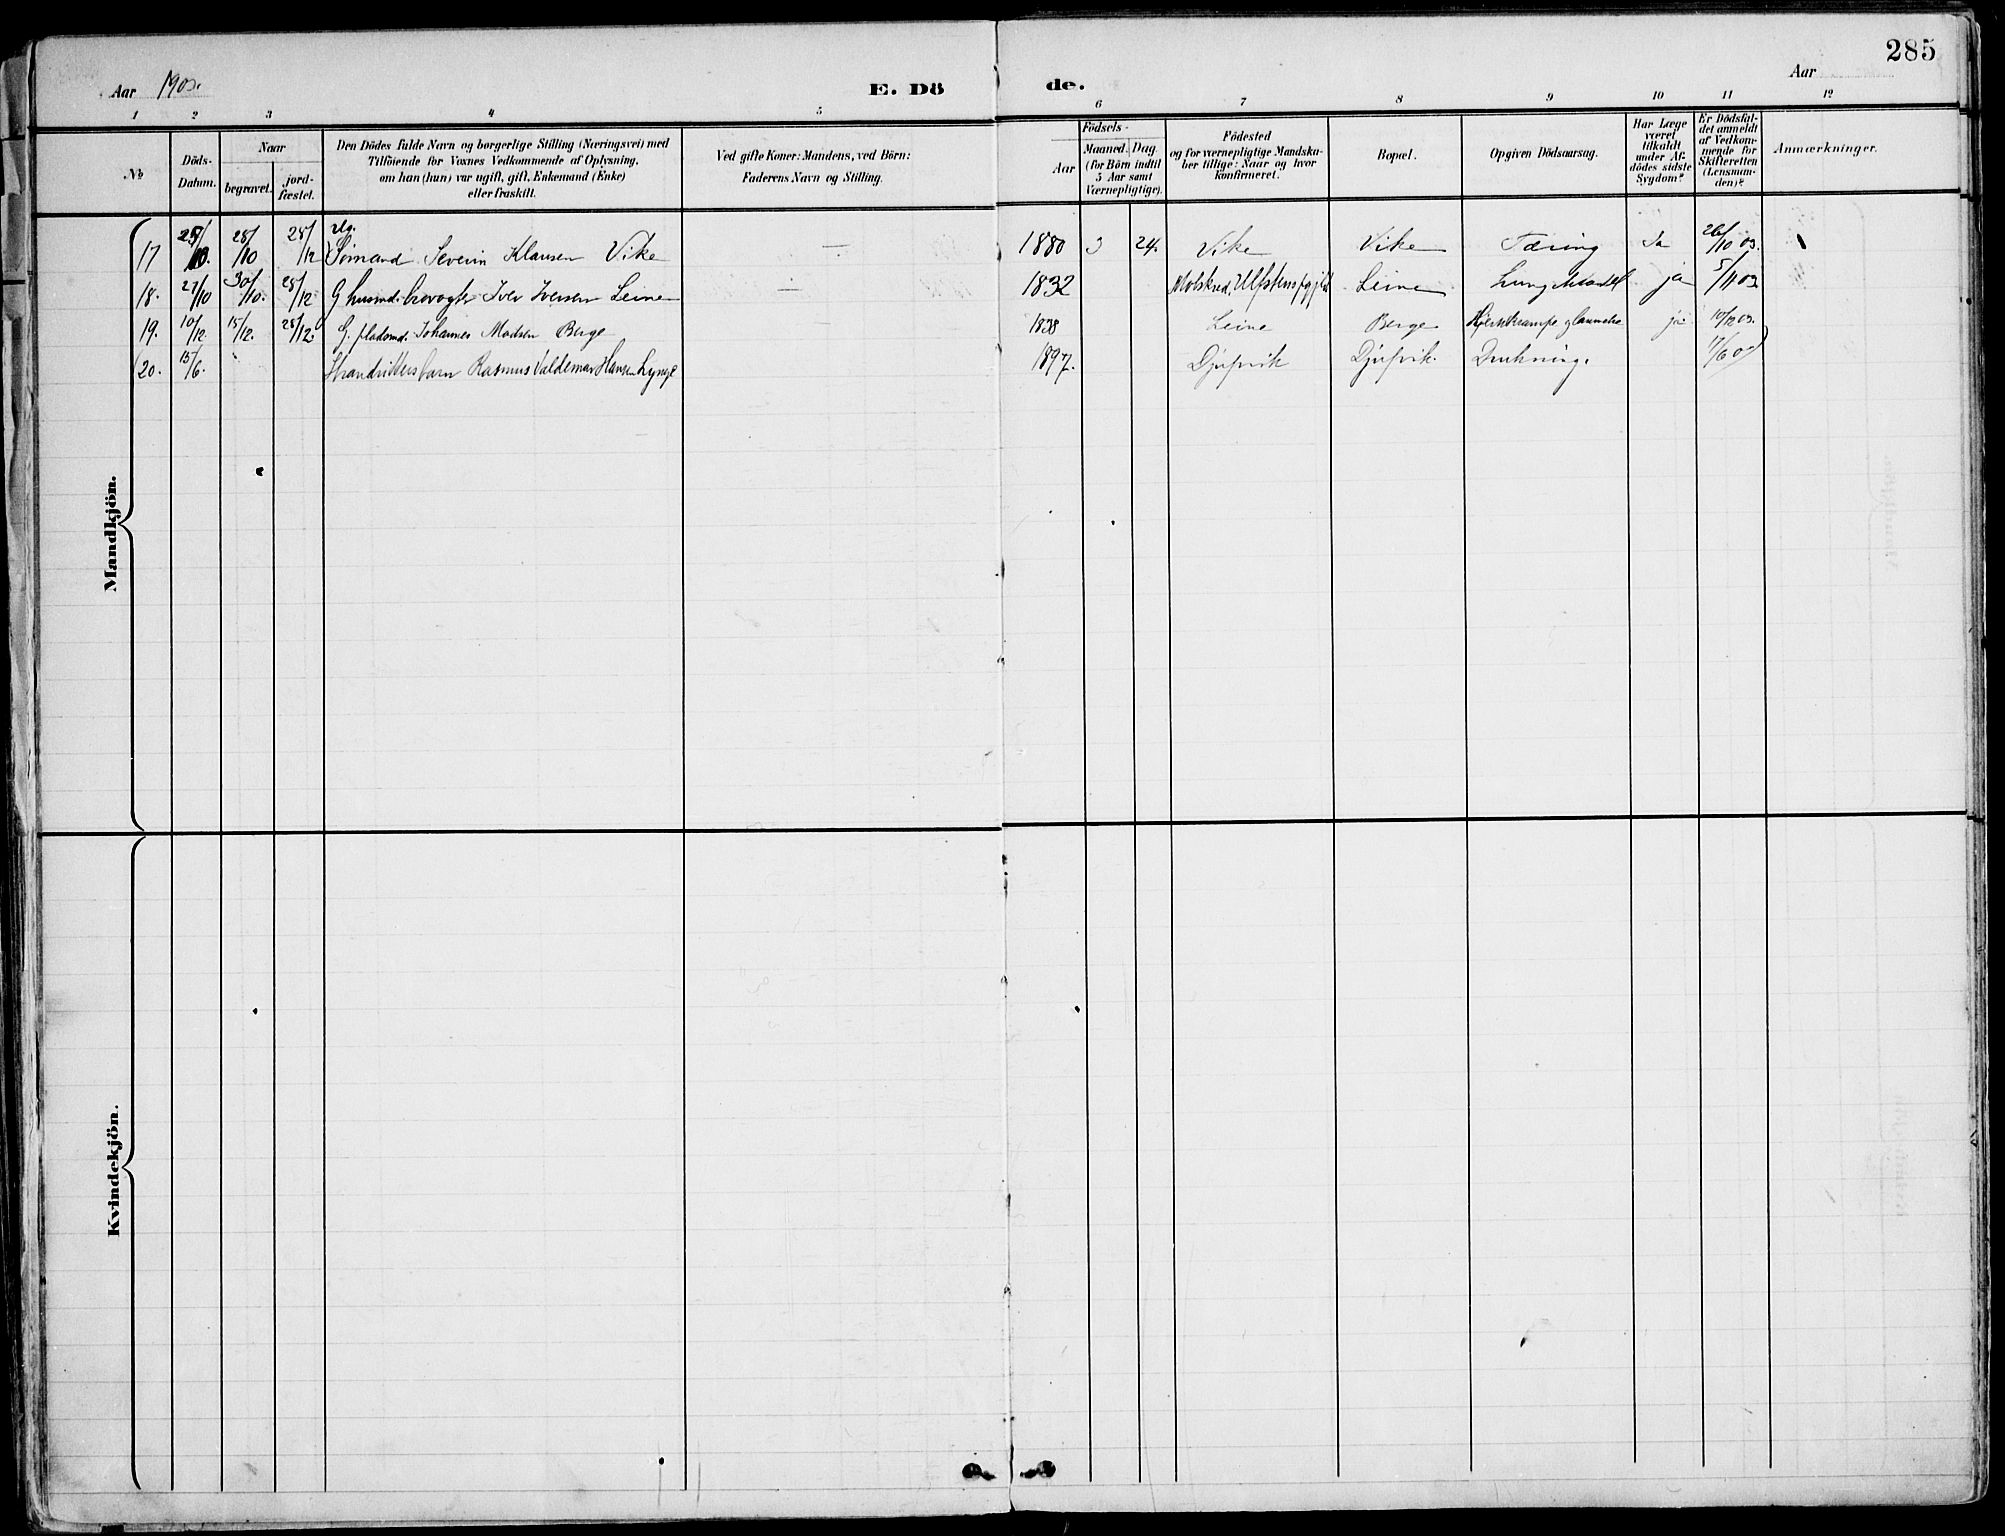 285
Aar 1903. E. Dö de. Aar
1 2 3 4 5 6 7 8 9 10 11 12
No
Döds-
Datum.
Naar
begravet.
jord-
fæstet.
Den Dödes fulde Navn og borgerlige Stilling (Næringsvei) med
Tilföiende for Voxnes Vedkommende af Oplysning,
om han (hun) var ugift, gift, Enkemand (Enke)
eller fraskilt.
Ved gifte Koner: Mandens, ved Börn:
Faderens Navn og Stilling.
Födsels-
Aar
Maaned. Dag.
(for Börn indtil
5 Aar samt
Værnepligtige).
Födested
og for værnepligtige Mandska-
ber tillige: Naar og hvor
konfirmeret.
Bopæl.
Opgiven Dödsaarsag.
Har Læge
været
tilkaldt
under Af-
dödes sidste
Sygdom?
Er Dödsfal-
det anmeldt
af Vedkom-
mende for
Skifteretten
(Lensman-
den)?
Anmærkninger.
Mandkjön.
17 25/10. 28/10 28/12 Ug. Sømand Severin Klausen Vike — 1880 3 24. Vike Vike Tæring Ja 26/10 03.
18. 27/10 30/10. 28/12 G husmd. Iver Iversen Leine — 1832 Leine ja 5/11 03
19. 10/12. 15/12. 28/12. G. pladsmd. Johannes Madsen Berge 1838 Leine Berge ja 10/12 03.
20. 15/6. Rasmus Valdemar Hansen Lynge 1897. Djupvik Djupvik. Drukning. 17/6 03
Kvindekjön.